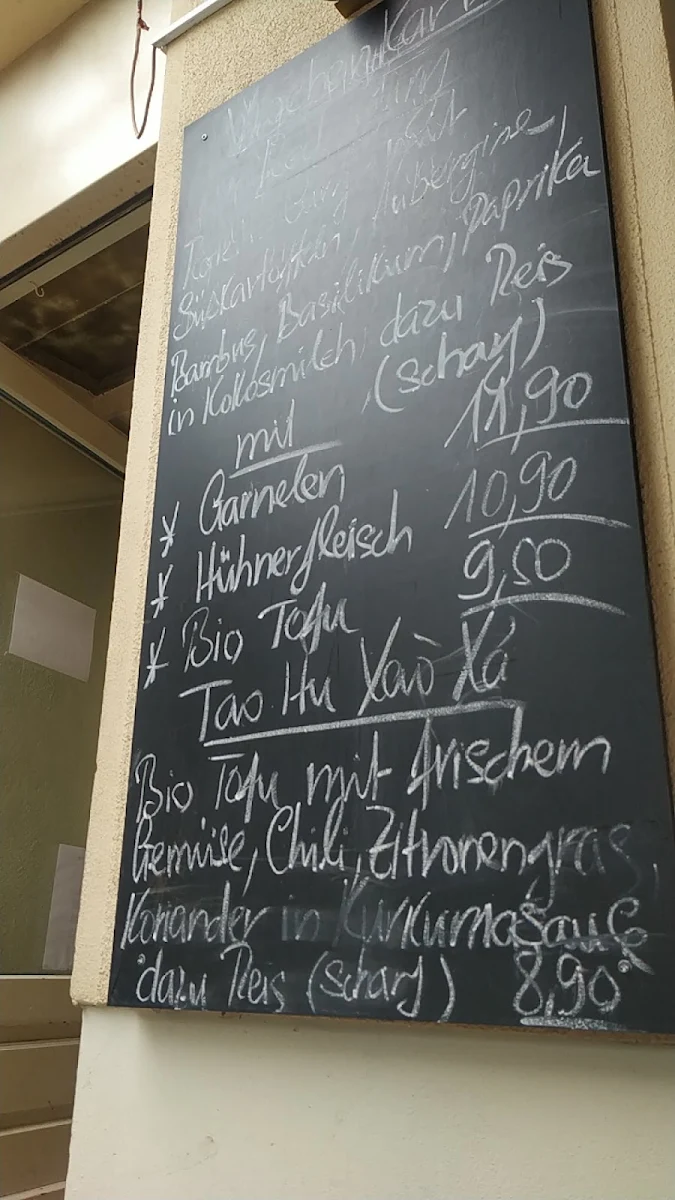 Wochenkarte
Curry mit
Süßkartoffeln, Aubergine,
Bambus, Basilikum, Paprika
in Kokosmilch, dazu Reis
(scharf)
mit
* Garnelen 11,90
* Hühnerfleisch 10,90
* Bio Tofu 9,50
Tao Hu Xaò Xá
Bio Tofu mit frischem
Gemüse, Chili, Zitronengras,
Koriander in Kurkumasauce
dazu Reis (scharf) 8,90